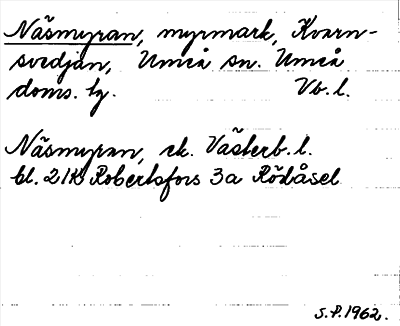 Näsmyran, myrmark, Kvarn-
svedjan, Umeå sn. Umeå
doms. lg. Vb. l.
Näsmyran, ek. Västerb. l.
bl. 21K Robertsfors 3a Rödåsel
S.P. 1962.